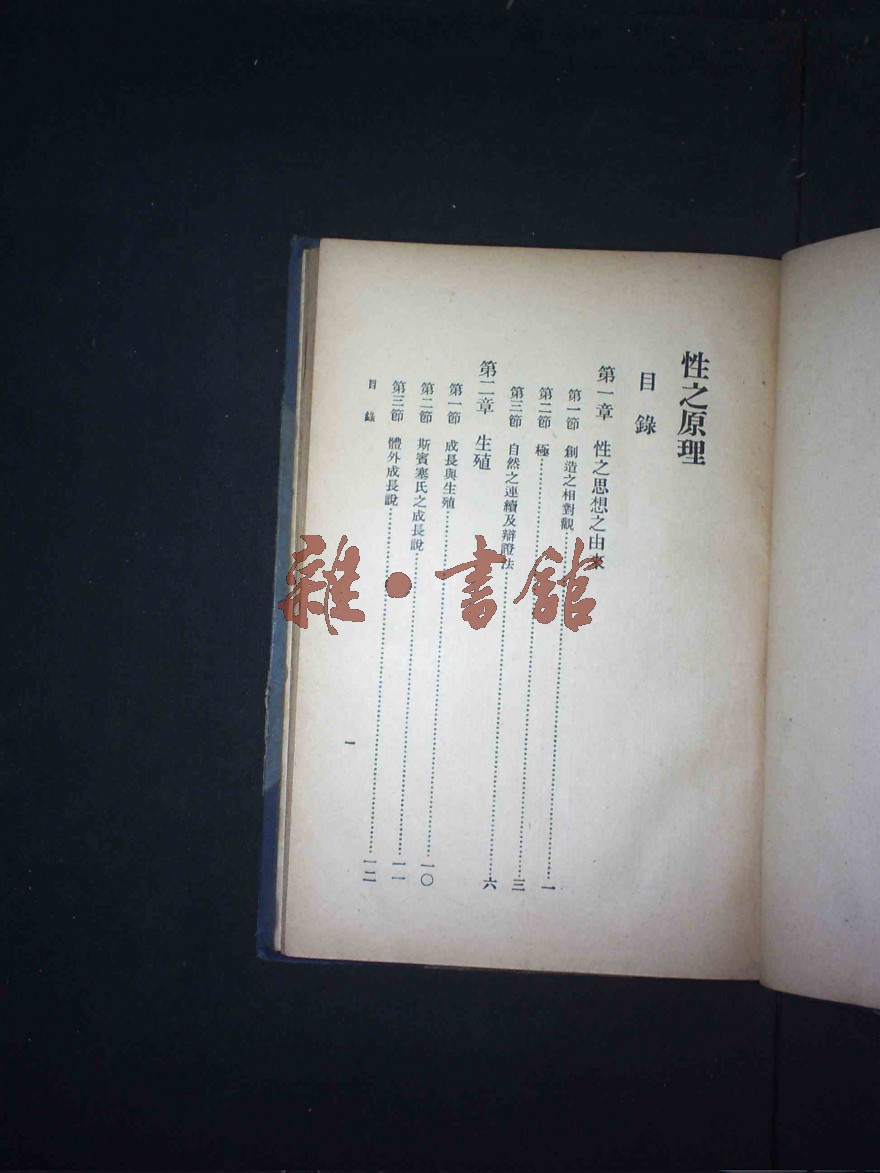 性之原理
目錄
第一章 性之思想之由來
第一節 創造之相對觀……一
第二節 極……三
第三節 自然之連續及辯證法……六
第二章 生殖
第一節 成長與生殖……一〇
第二節 斯賓塞氏之成長說……一一
第三節 體外成長說……一二
目錄
一
雜·書館